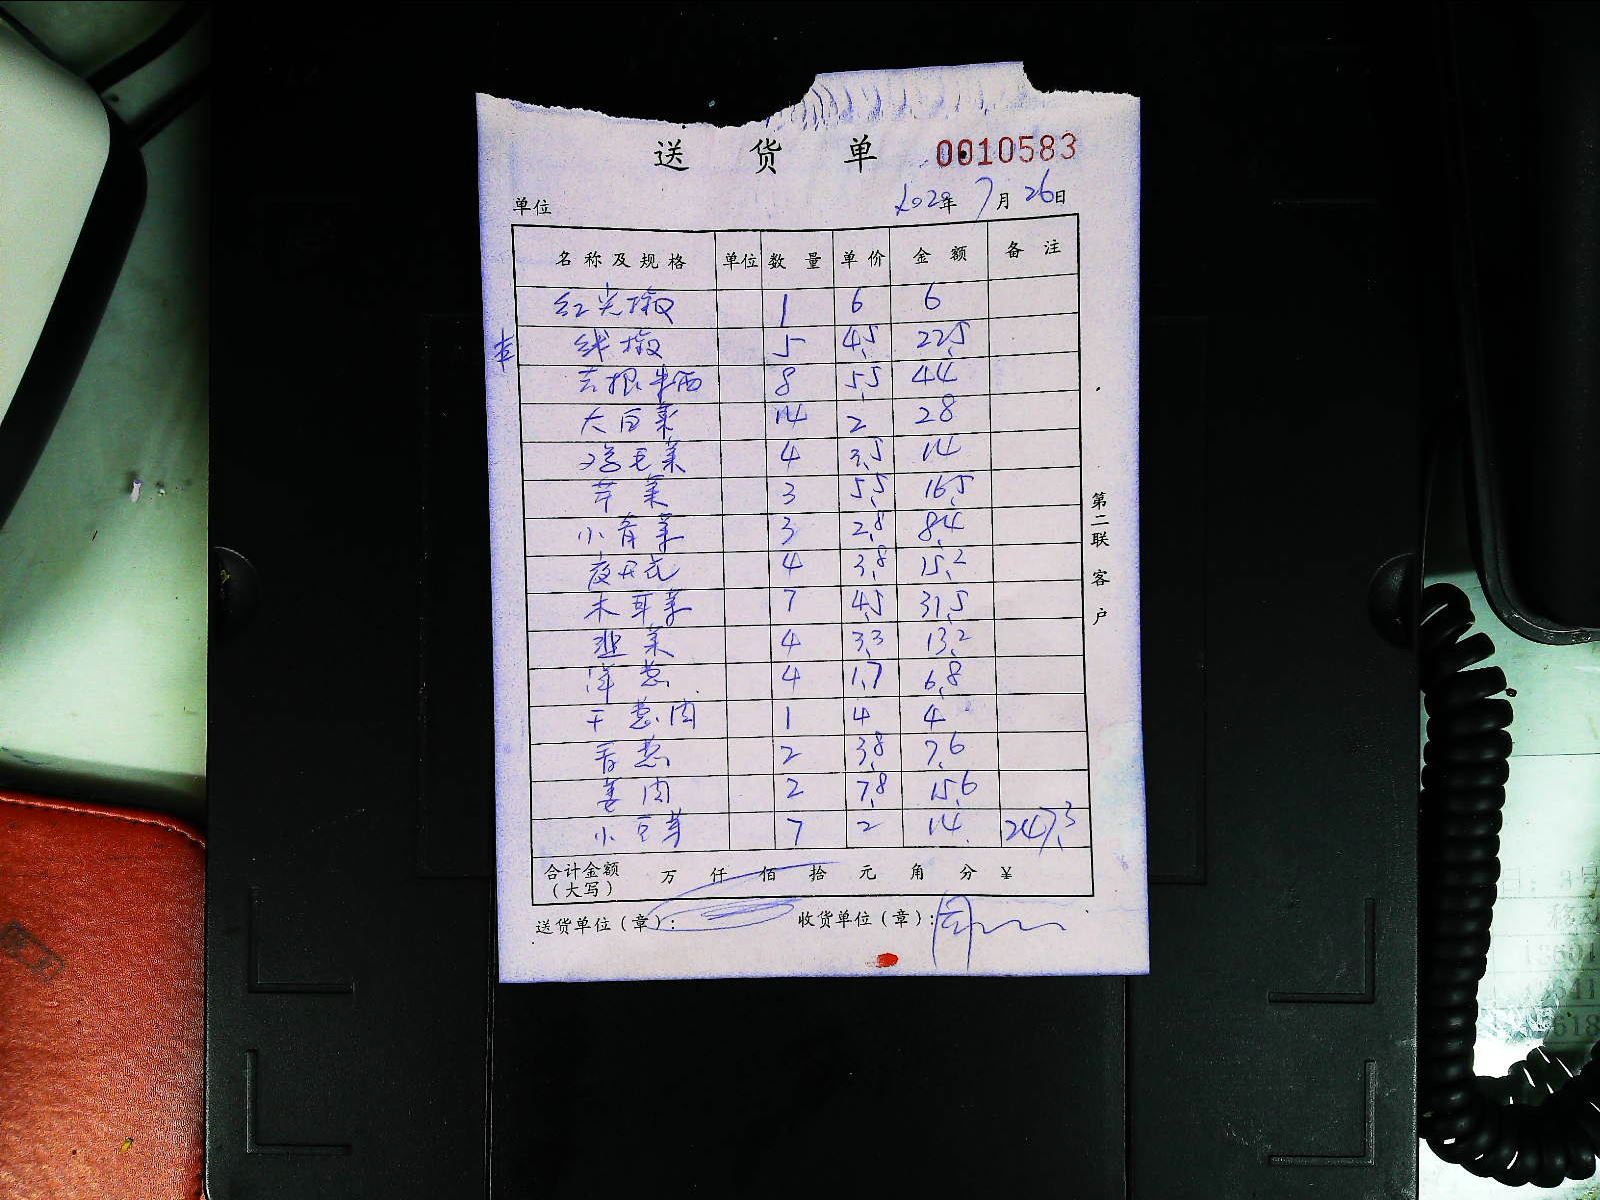 送货单 0010583
单位 2020年7月26日
名称及规格 单位 数量 单价 金额 备注
红尖椒 1 6 6
线椒 5 4.5 22.5
去根米西 8 5.5 44
大白菜 14 2 28
鸡毛菜 4 3.5 14
芹菜 3 5.5 16.5
小青菜 3 2.8 8.4
夜开花 4 3.8 15.2
木耳菜 7 4.5 31.5
韭菜 4 3.3 13.2
洋葱 4 1.7 6.8
干葱肉 1 4 4
香葱 2 3.8 7.6
姜肉 2 7.8 15.6
小豆芽 7 2 14 247.3
合计金额(大写) 万 仟 佰 拾 元 角 分 ¥
送货单位(章): 收货单位(章):
第二联 客户